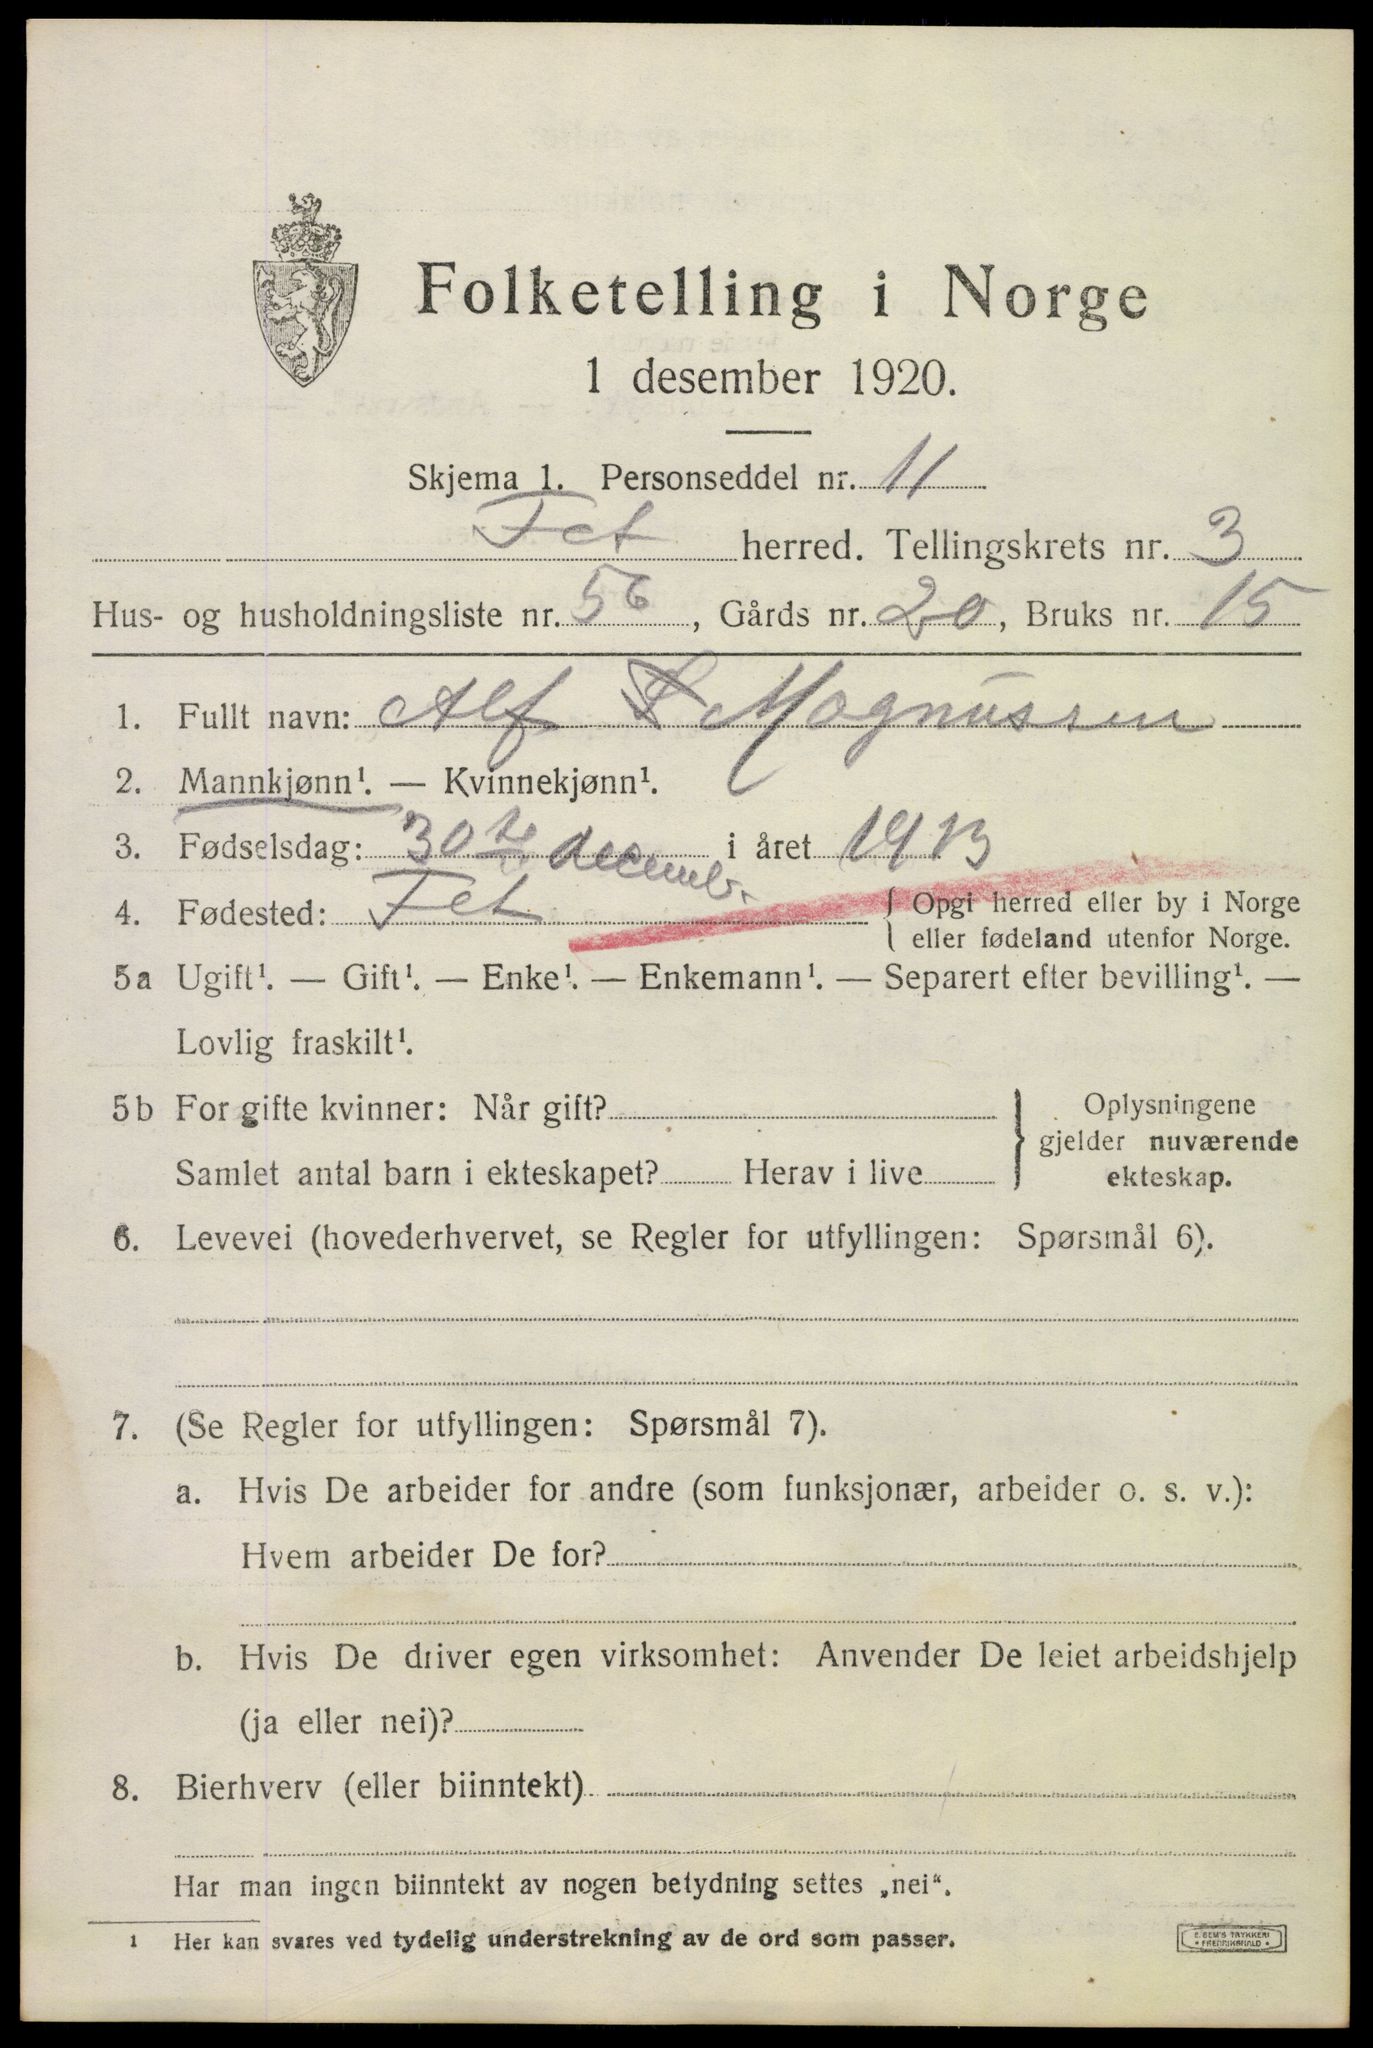 Folketelling i Norge
1 desember 1920.
Skjema 1. Personseddel nr. 11
Fet herred. Tellingskrets nr. 3
Hus- og husholdningsliste nr. 56, Gårds nr. 20, Bruks nr. 15
1. Fullt navn: Alf Magnussen
2. Mannkjønn¹. — Kvinnekjønn¹.
3. Fødselsdag: 30te decemb. i året 1913
4. Fødested: Fet { Opgi herred eller by i Norge
eller fødeland utenfor Norge.
5a Ugift¹. — Gift¹. — Enke¹. — Enkemann¹. — Separert efter bevilling¹. —
Lovlig fraskilt¹.
5b For gifte kvinner: Når gift? } Oplysningene
gjelder nuværende
Samlet antal barn i ekteskapet? Herav i live ekteskap.
6. Levevei (hovederhvervet, se Regler for utfyllingen: Spørsmål 6).
7. (Se Regler for utfyllingen: Spørsmål 7).
a. Hvis De arbeider for andre (som funksjonær, arbeider o. s. v.):
Hvem arbeider De for?
b. Hvis De driver egen virksomhet: Anvender De leiet arbeidshjelp
(ja eller nei)?
8. Bierhverv (eller biinntekt)
Har man ingen biinntekt av nogen betydning settes „nei“.
1 Her kan svares ved tydelig understrekning av de ord som passer.
E. SEM'S TRYKKERI
• FREDRIKSHALD •